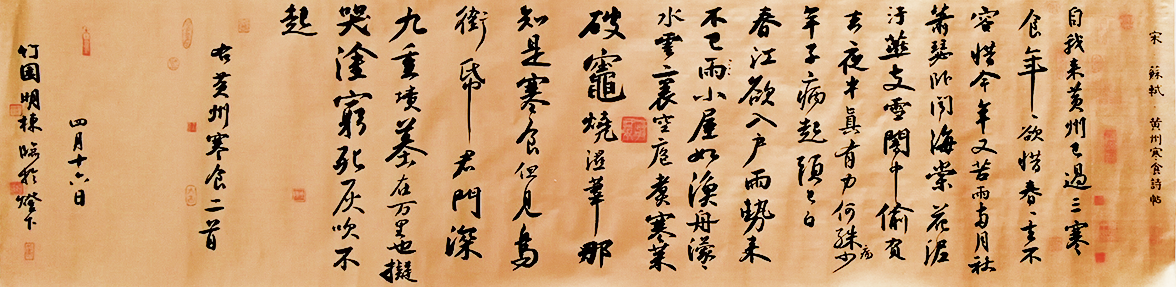 宋 蘇軾 黄州寒食詩帖
自我来黄州已過三寒
食年〻欲惜春〻去不
容惜今年又苦雨兩月秋
蕭瑟卧聞海棠花泥
汙燕支雪闇中偷負
去夜半真有力何殊少病
年子病起頭已白
春江欲入户雨勢来
不已雨小屋如漁舟濛〻
水雲裏空庖煮寒菜
破竈燒濕葦那
知是寒食但見烏
銜帋君門深
九重墳墓在万里也擬
哭塗窮死灰吹不
起
右黄州寒食二首
四月十六日
竹園明棟臨於燈下